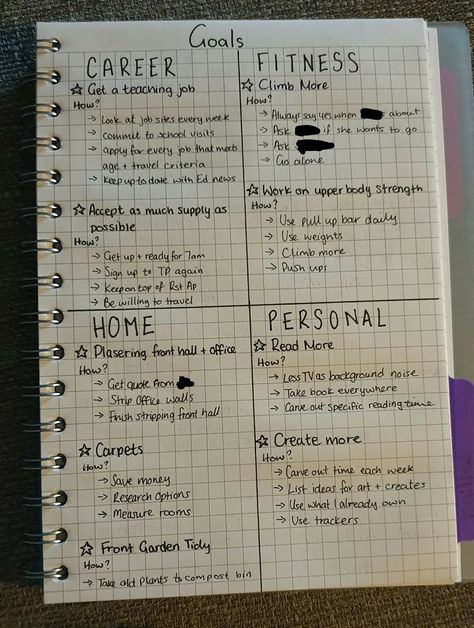 Goals
CAREER
☆ Get a teaching job
How?
→ Look at job sites every week
→ commit to school visits
→ apply for every job that meets
age + travel criteria
→ Keep up to date with Ed news
☆ Accept as much supply as
possible
How?
→ Get up + ready for 7am
→ Sign up to TP again
→ Keep on top of Rst Ap
→ Be willing to travel
FITNESS
☆ Climb More
How?
→ Always say yes when about
→ Ask if she wants to go
→ Ask
→ Go alone
☆ Work on upper body strength
How?
→ Use pull up bar daily
→ Use weights
→ Climb more
→ Push ups
HOME
☆ Plasering front hall + office
How?
→ Get quote from
→ Strip Office walls
→ Finish stripping front hall
☆ Carpets
How?
→ Save money
→ Research Options
→ Measure rooms
☆ Front Garden Tidy
How?
→ Take old plants to compost bin
PERSONAL
☆ Read More
How?
→ Less TV as background noise
→ Take book everywhere
→ Carve out specific reading time
☆ Create more
How?
→ Carve out time each week
→ List ideas for art + creates
→ Use what I already own
→ Use trackers